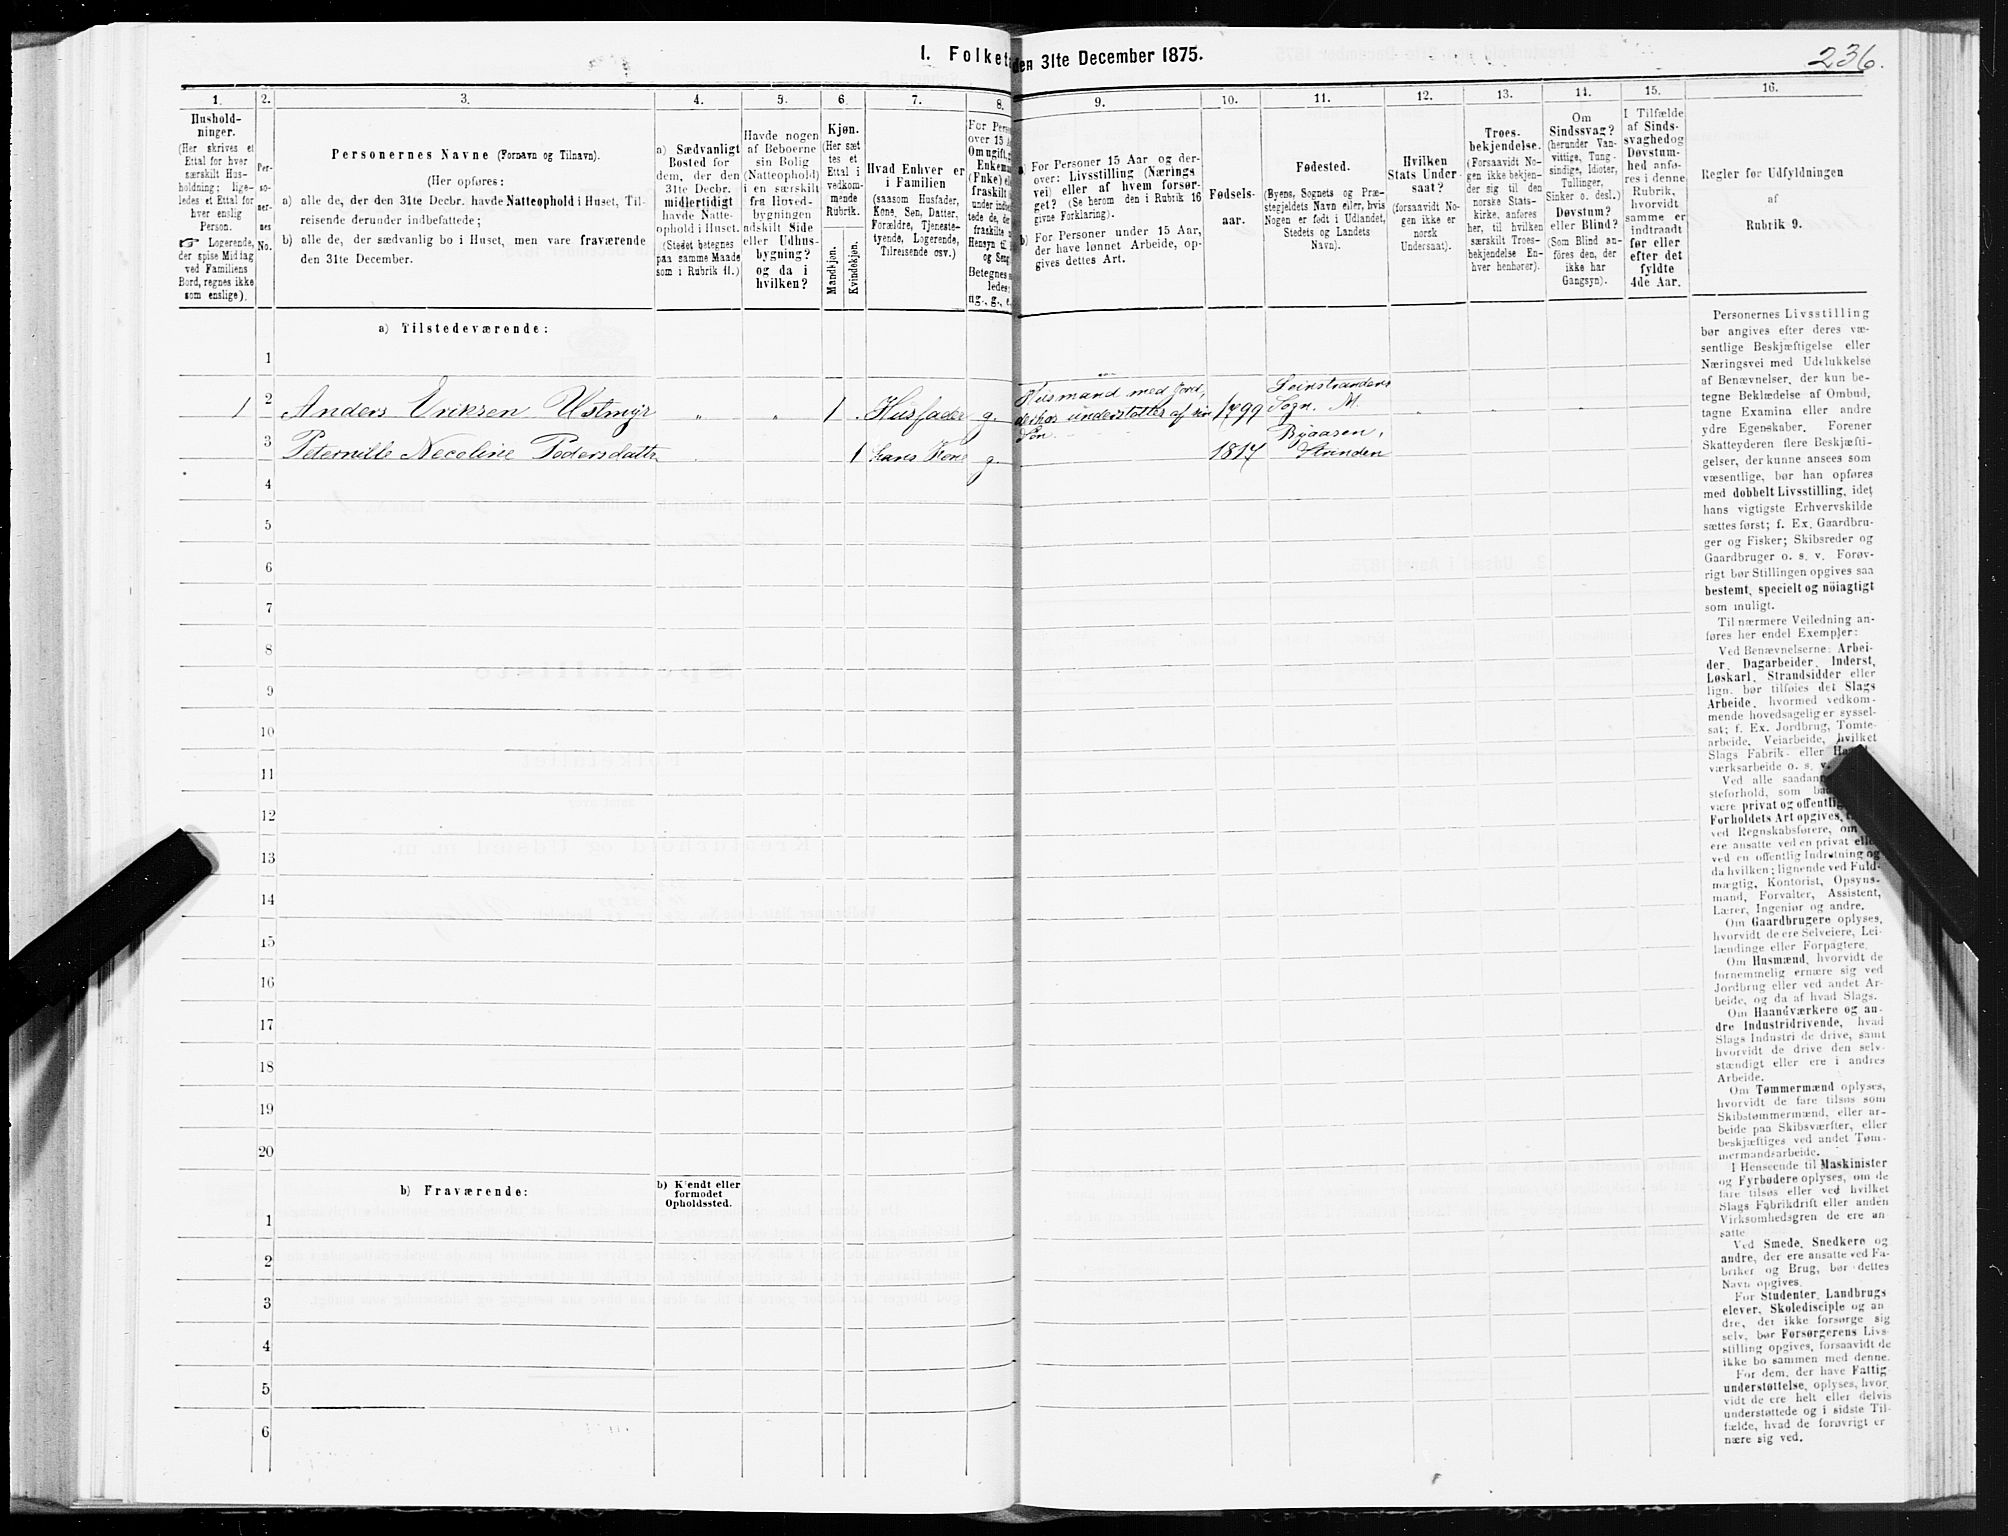 1. Folketæ
den 31te December 1875.
236.
1.
2.
3.
4.
5.
6.
7.
8.
9.
10.
11.
12.
13.
14.
15.
16.
Hushold-
ninger.
(Her skrives et
Ettal for hver
særskilt Hus-
holdning; lige-
ledes et Ettal for
hver enslig
Person.
☞ Logerende,
der spise Middag
ved Familiens
Bord, regnes ikke
som enslige).
Per-
so-
ner-
nes
No.
Personernes Navne (Fornavn og Tilnavn).
(Her opføres:
a) alle de, der den 31te Decbr. havde Natteophold i Huset, Til-
reisende derunder indbefattede;
b) alle de, der sædvanlig bo i Huset, men vare fraværende
den 31te December.
a) Sædvanligt
Bosted for
dem, der den
31te Decbr.
midlertidigt
havde Natte-
ophold i Huset.
(Stedet betegnes
paa samme Maade
som i Rubrik 11.)
Havde nogen
af Beboerne
sin Bolig
(Natteophold)
i en særskilt
fra Hoved-
bygningen
adskilt Side
eller Udhus-
bygning?
og da i
hvilken?
Kjøn.
(Her sæt
tes et
Ettal i
vedkom-
mende
Rubrik.
Mandkjøn.
Kvindekjøn.
Hvad Enhver er
i Familien
(saasom Husfader,
Kone, Søn, Datter,
Forældre, Tjeneste-
tyende, Logerende,
Tilreisende osv.)
For Perso
over 15 A
Om ugift, g
Enkema
(Enke) el
fraskilt
under indb
tede de, de
fraskilte
Hensyn til
og Seng
Betegnes s
ledes:
ug., g., e.
a) For Personer 15 Aar og der-
over: Livsstilling (Nærings
vei) eller af hvem forsør-
get? (Se herom den i Rubrik 16
givne Forklaring).
b) For Personer under 15 Aar,
der have lønnet Arbeide, op-
gives dettes Art.
Fødsels-
aar.
Fødested.
(Byens, Sognets og Præ-
stegjeldets Navn eller, hvis
Nogen er født i Udlandet,
Stedets og Landets
Navn).
Hvilken
Stats Under-
saat?
(forsaavidt No-
gen ikke er
norsk
Undersaat).
Troes-
bekjendelse.
(Forsaavidt No-
gen ikke bekjen-
der sig til den
norske Stats-
kirke, anføres
her, til hvilken
særskilt Troes-
bekjendelse En-
hver henhører).
Om
Sindssvag?
(herunder Van-
vittige, Tung-
sindige, Idioter,
Tullinger,
Sinker o. desl.)
Døvstum?
eller Blind?
(Som Blind an-
føres den, der
ikke har
Gangsyn).
I Tilfælde
af Sinds-
svaghed og
Døvstum-
hed anfø-
res i denne
Rubrik,
hvorvidt
samme er
indtraadt
før eller
efter det
fyldte
4de Aar.
Regler for Udfyldningen
af
Rubrik 9.
a) Tilstedeværende:
1
1 2 Anders Eriksen Ustmyr „ „ 1 . Husfader g. Husmand med Jord, derhos understøttes af sin Søn 1799 Leinstrandens Sogn. M.
3 Peternille Necoline Pedersdatte 1 hans Kone g. 1817 Byaasen, Strinden
4
5
6
7
8
9
10
11
12
13
14
15
16
17
18
19
20
b) Fraværende:
b) Kjendt eller
formodet
Opholdssted.
1
2
3
4
5
6
Personernes Livsstilling
bør angives efter deres væ-
sentlige Beskjæftigelse eller
Næringsvei med Udelukkelse
af Benævnelser, der kun be-
tegne Beklædelse af Ombud,
tagne Examina eller andre
ydre Egenskaber. Forener
Skatteyderen flere Beskjæfti-
gelser, der kunne ansees som
væsentlige, bør han opføres
med dobbelt Livsstilling, idet
hans vigtigste Erhvervskilde
sættes først; f. Ex. Gaardbru-
ger og Fisker; Skibsreder og
Gaardbruger o. s. v. Forøv-
rigt bør Stillingen opgives saa
bestemt, specielt og nöiagtigt
som muligt.
Til nærmere Veiledning an-
føres her endel Exempler:
Ved Benævnelserne: Arbei-
der, Dagarbeider, Inderst,
Løskarl, Strandsidder eller
lign. bør tilføies det Slags
Arbeide, hvormed vedkom-
mende hovedsagelig er syssel-
sat; f. Ex. Jordbrug, Tomte-
arbeide, Veiarbeide, hvilket
Slags Fabrik- eller Ha
værksarbeide o. s. v.
Ved alle saadan
steforhold, som b
være privat og offentlig
Forholdets Art opgives,
ved Regnskabsførere, om
ere ansatte ved en privat elle
ved en offentlig Indretning og
da hvilken; lignende ved Fuld-
mægtig, Kontorist, Opsyns-
mand, Forvalter, Assistent,
Lærer, Ingeniør og andre.
Om Gaardbrugere oplyses,
hvorvidt de ere Selveiere, Lei-
lændinge eller Forpagtere.
Om Husmænd, hvorvidt de
fornemmelig ernære sig ved
Jordbrug eller ved andet Ar-
beide, og da af hvad Slags.
Om Haandværkere og an-
dre Industridrivende, hvad
Slags Industri de drive, samt
hvorvidt de drive den selv-
stændigt eller ere i andres
Arbeide.
Om Tømmermænd oplyses,
hvorvidt de fare tilsøs som
Skibstømmermænd, eller ar-
beide paa Skibsværfter, eller
beskjæftiges ved andet Tøm-
mermandsarbeide.
I Henseende til Maskinister
og Fyrbødere oplyses, om de
fare tilsøs eller ved hvilket
Slags Fabrikdrift eller anden
Virksomhedsgren de ere an-
satte
Ved Smede, Snedkere og
andre, der ere ansatte ved Fa-
briker og Brug, bør dettes
Navn opgives.
For Studenter, Landbrugs
elever, Skoledisciple og an
dre, der ikke forsørge sig
selv, bør Forsørgerens Livs-
stilling opgives, forsaavidt de
ikke bo sammen med denne.
For dem, der have Fattig
understøttelse, oplyses, hvor
vidt de ere helt eller delvis
understøttede og i sidste Til-
fælde, hvad de forøvrigt er
nære sig ved.